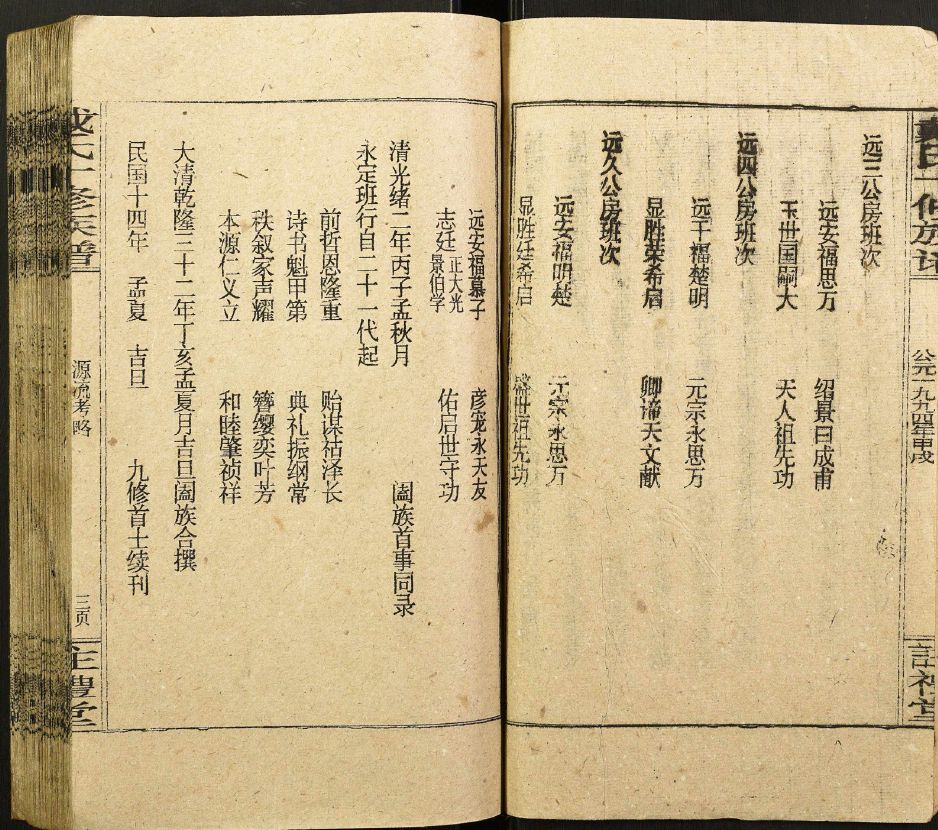 公元一九九四年甲戌
远三公房班次
远安福思万 绍景曰成甫
玉世国嗣大 天人祖先功
远四公房班次
远干福楚明 元宗永思万
显胜荣希启 卿谛天文献
远久公房班次
远安福明楚 元宗永思万
显胜廷希启 盛世祖先功
远安福慕子 彦宠永天友
志廷正大光景伯学 佑启世守功
清光绪二年丙子孟秋月 阖族首事同录
永定班行自二十一代起
前哲恩隆重 贻谋祜泽长
诗书魁甲第 典礼振纲常
秩叙家声耀 簪缨奕叶芳
本源仁义立 和睦肇祯祥
大清乾隆三十二年丁亥孟夏月吉旦阖族合撰
民国十四年 孟夏 吉旦 九修首士续刊
源流考略
三页